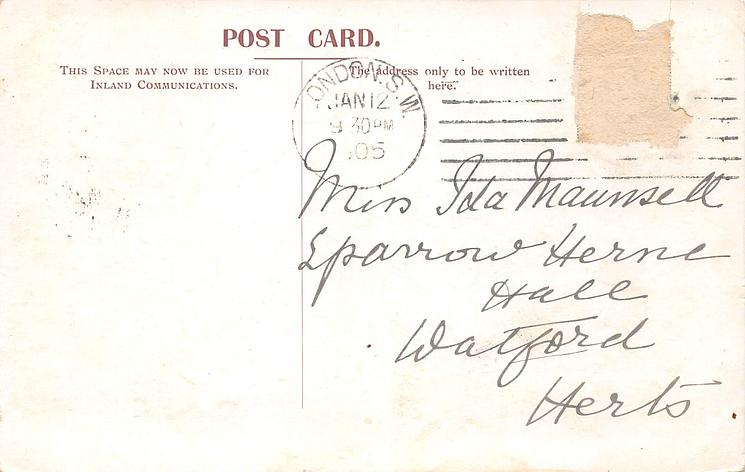 POST CARD.
THIS SPACE MAY NOW BE USED FOR
INLAND COMMUNICATIONS.
The address only to be written
here.
LONDON. S.W.
JAN 12
9 30 PM
05
Miss Ida Maunsell
Sparrow Herne
Hall
Watford
Herts